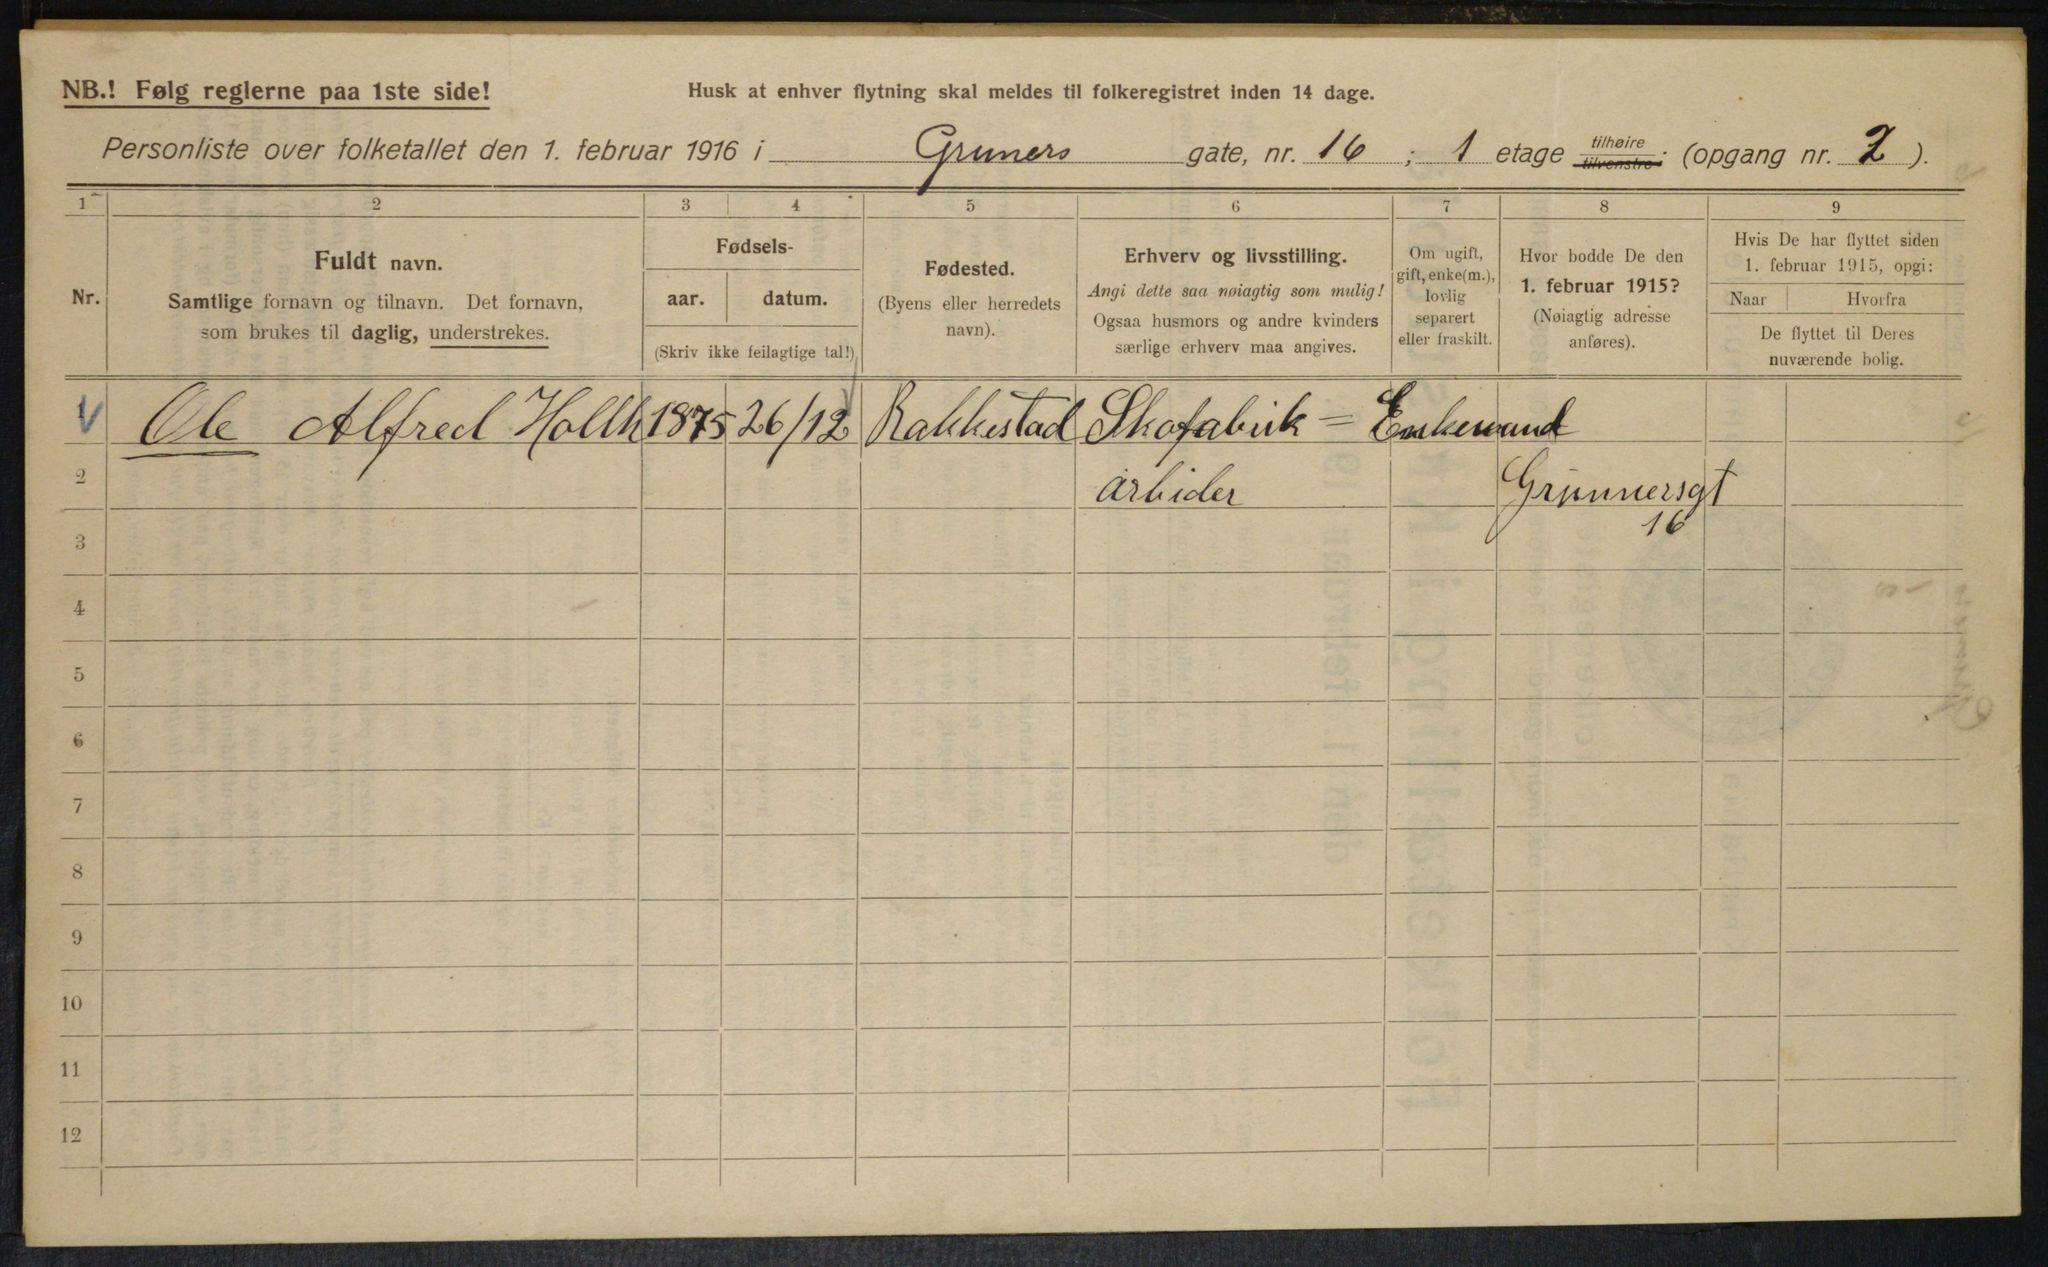 NB.! Følg reglerne paa 1ste side!
Husk at enhver flytning skal meldes til folkeregistret inden 14 dage.
Personliste over folketallet den 1. februar 1916 i Gruners gate, nr. 16 ; 1 etage tilhøire tilvenstre. (opgang nr. 2 ).
1 2 3 4 5 6 7 8 9
Nr.
Fuldt navn.
Samtlige fornavn og tilnavn. Det fornavn,
som brukes til daglig, understrekes.
Fødsels-
aar. datum.
(Skriv ikke feilagtige tal!)
Fødested.
(Byens eller herredets
navn).
Erhverv og livsstilling.
Angi dette saa nøiagtig som mulig!
Ogsaa husmors og andre kvinders
særlige erhverv maa angives.
Om ugift,
gift, enke(m.),
lovlig
separert
eller fraskilt.
Hvor bodde De den
1. februar 1915?
(Nøiagtig adresse
anføres).
Hvis De har flyttet siden
1. februar 1915, opgi:
Naar Hvorfra
De flyttet til Deres
nuværende bolig.
1 Ole Alfred Holth 1875 26/12 Rakkestad Skofabrik= Enkemand
2 arbider Grünnersgt
3 16
4
5
6
7
8
9
10
11
12